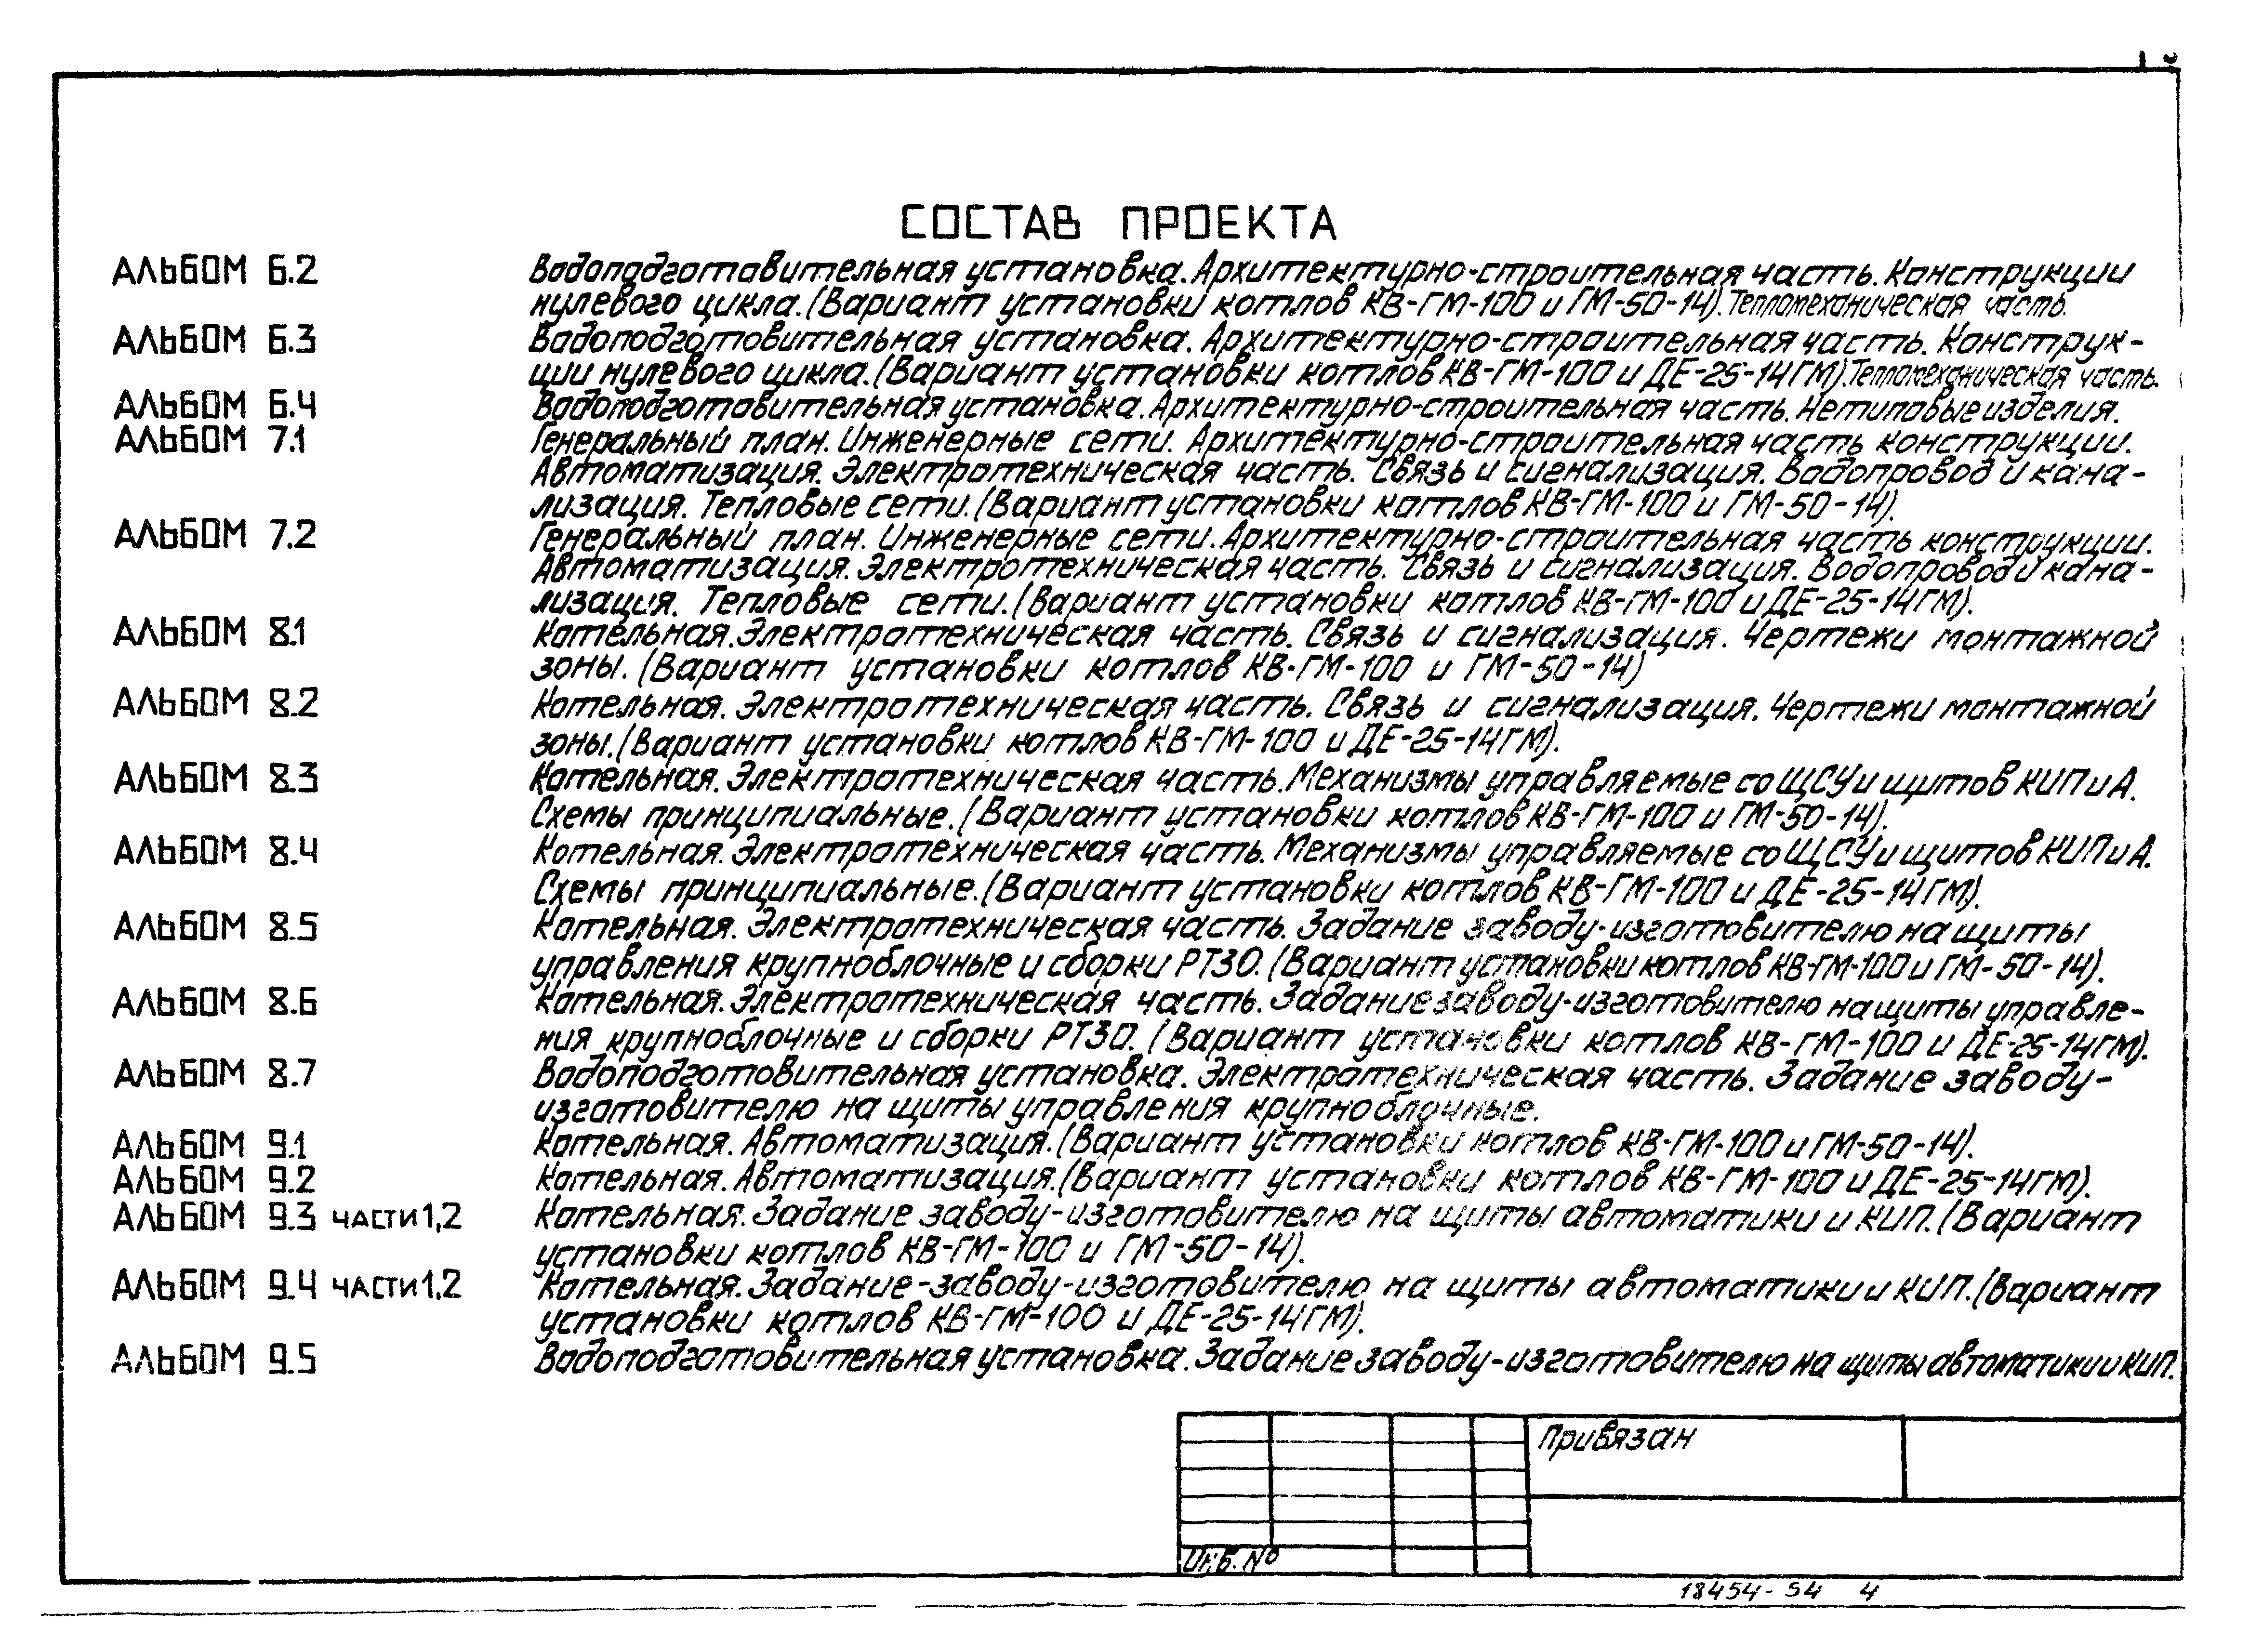 СОСТАВ ПРОЕКТА
АЛЬБОМ 6.2 Водоподготовительная установка. Архитектурно-строительная часть. Конструкции
нулевого цикла. (Вариант установки котлов КВ-ГМ-100 и ГМ-50-14). Тепломеханическая часть.
АЛЬБОМ 6.3 Водоподготовительная установка. Архитектурно-строительная часть. Конструк-
ции нулевого цикла. (Вариант установки котлов КВ-ГМ-100 и ДЕ-25-14ГМ). Тепломеханическая часть.
АЛЬБОМ 6.4 Водоподготовительная установка. Архитектурно-строительная часть. Нетиповые изделия.
АЛЬБОМ 7.1 Генеральный план. Инженерные сети. Архитектурно-строительная часть конструкции.
Автоматизация. Электротехническая часть. Связь и сигнализация. Водопровод и кана-
лизация. Тепловые сети. (Вариант установки котлов КВ-ГМ-100 и ГМ-50-14).
АЛЬБОМ 7.2 Генеральный план. Инженерные сети. Архитектурно-строительная часть конструкции.
Автоматизация. Электротехническая часть. Связь и сигнализация. Водопровод и кана-
лизация. Тепловые сети. (Вариант установки котлов КВ-ГМ-100 и ДЕ-25-14ГМ).
АЛЬБОМ 8.1 Котельная. Электротехническая часть. Связь и сигнализация. Чертежи монтажной
зоны. (Вариант установки котлов КВ-ГМ-100 и ГМ-50-14)
АЛЬБОМ 8.2 Котельная. Электротехническая часть. Связь и сигнализация. Чертежи монтажной
зоны. (Вариант установки котлов КВ-ГМ-100 и ДЕ-25-14ГМ).
АЛЬБОМ 8.3 Котельная. Электротехническая часть. Механизмы управляемые со ЩСУ и щитов КИП и А.
Схемы принципиальные. (Вариант установки котлов КВ-ГМ-100 и ГМ-50-14).
АЛЬБОМ 8.4 Котельная. Электротехническая часть. Механизмы управляемые со ЩСУ и щитов КИП и А.
Схемы принципиальные. (Вариант установки котлов КВ-ГМ-100 и ДЕ-25-14ГМ).
АЛЬБОМ 8.5 Котельная. Электротехническая часть. Задание заводу-изготовителю на щиты
управления крупноблочные и сборки РТЗО. (Вариант установки котлов КВ-ГМ-100 и ГМ-50-14).
АЛЬБОМ 8.6 Котельная. Электротехническая часть. Задание заводу-изготовителю на щиты управле-
ния крупноблочные и сборки РТЗО. (Вариант установки котлов КВ-ГМ-100 и ДЕ-25-14ГМ).
АЛЬБОМ 8.7 Водоподготовительная установка. Электротехническая часть. Задание заводу-
изготовителю на щиты управления крупноблочные.
АЛЬБОМ 9.1 Котельная. Автоматизация. (Вариант установки котлов КВ-ГМ-100 и ГМ-50-14).
АЛЬБОМ 9.2 Котельная. Автоматизация. (Вариант установки котлов КВ-ГМ-100 и ДЕ-25-14ГМ).
АЛЬБОМ 9.3 ЧАСТИ 1,2 Котельная. Задание заводу-изготовителю на щиты автоматики и КИП. (Вариант
установки котлов КВ-ГМ-100 и ГМ-50-14).
АЛЬБОМ 9.4 ЧАСТИ 1,2 Котельная. Задание-заводу-изготовителю на щиты автоматики и КИП. (Вариант
установки котлов КВ-ГМ-100 и ДЕ-25-14ГМ).
АЛЬБОМ 9.5 Водоподготовительная установка. Задание заводу-изготовителю на щиты автоматики и КИП.
Привязан
Инв. №
18454-54 4